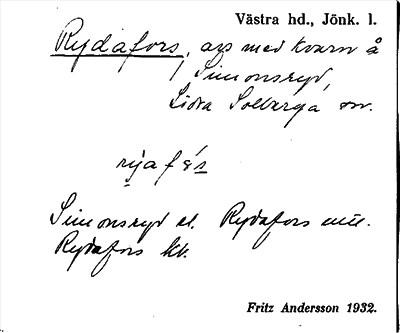 Västra hd., Jönk. l.
Rydafors, avs med kvarn å
Simonsryd,
Södra Solberga sn.
Simonsryd el. Rydafors mtl.
Rydafors kv.
Fritz Andersson 1932.